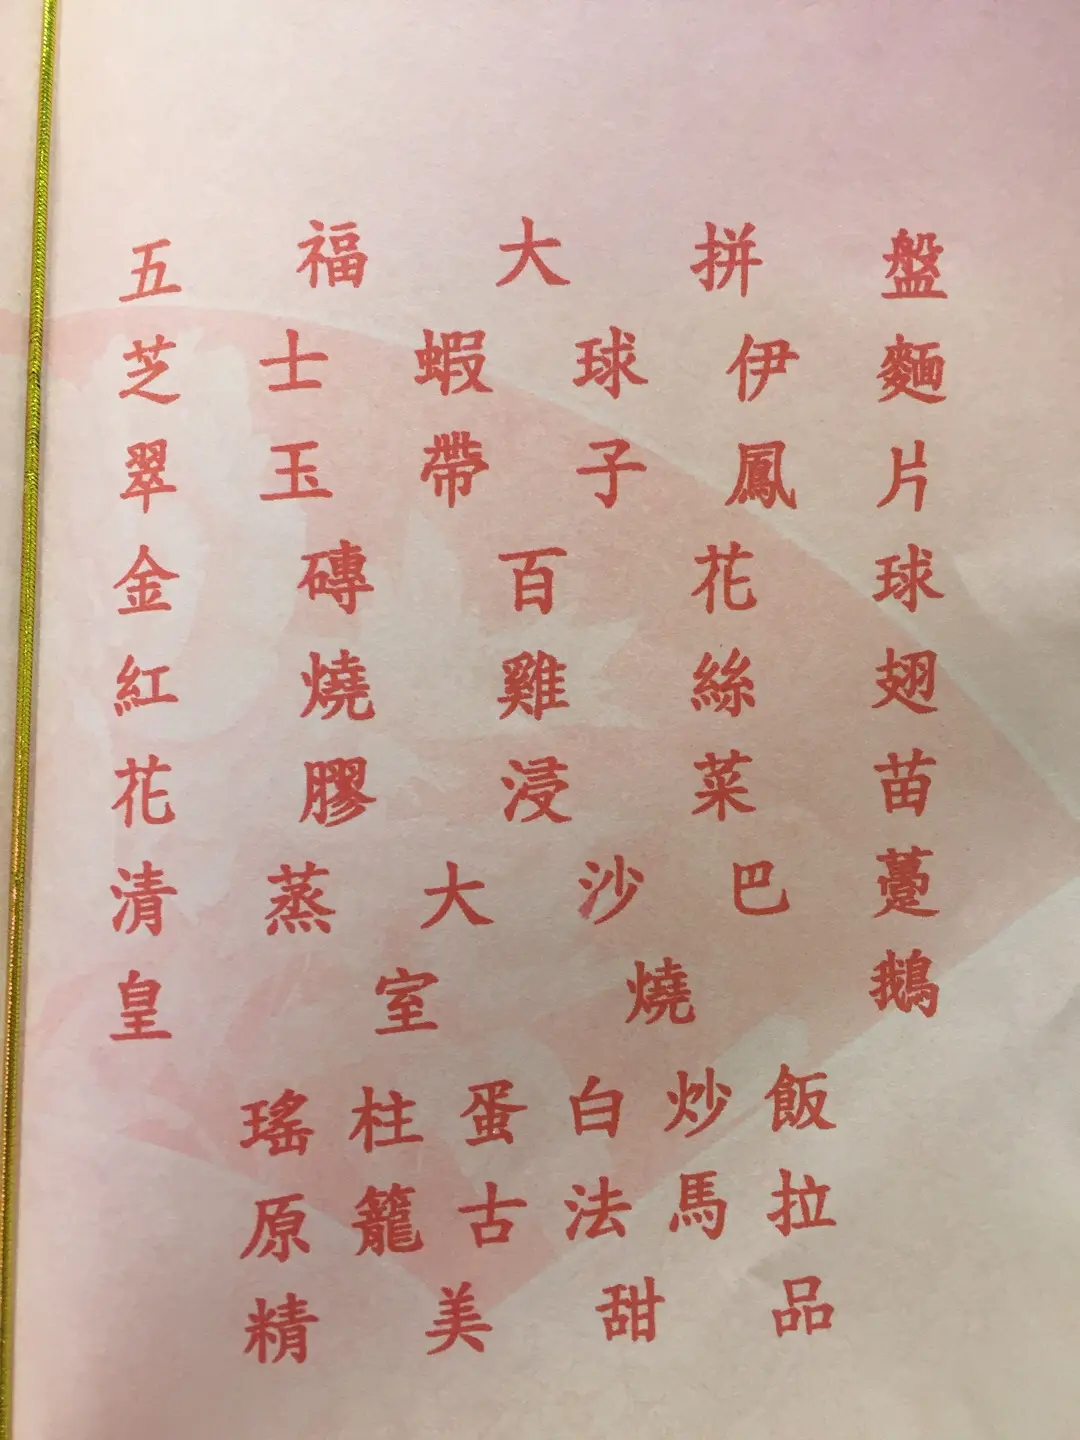 五福大拼盤
芝士蝦球伊麵
翠玉帶子鳳片
金磚百花球
紅燒雞絲翅
花膠浸菜苗
清蒸大沙巴躉
皇室燒鵝
瑤柱蛋白炒飯
原籠古法馬拉
精美甜品